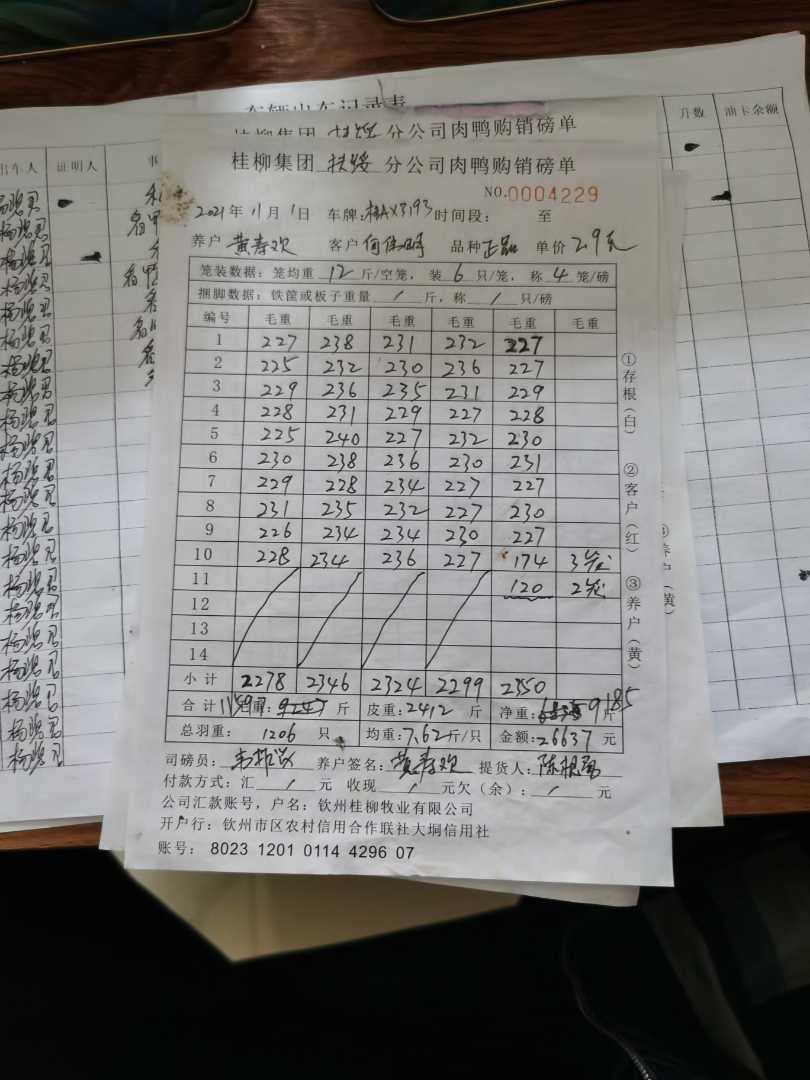 车辆出车记录表
升数 油卡余额
出车人 证明人 事
桂柳集团 扶绥 分公司肉鸭购销磅单
桂柳集团 扶绥 分公司肉鸭购销磅单
NO.0004229
2021年11月1日 车牌: 时间段: 至
养户 黄寿欢 客户 品种 正品 单价 2.9元
笼装数据: 笼均重 12 斤/空笼, 装 6 只/笼, 称 4 笼/磅
捆脚数据: 铁筐或板子重量 / 斤, 称 / 只/磅
编号 毛重 毛重 毛重 毛重 毛重 毛重
1 227 238 231 232 227
2 225 232 230 236 227
3 229 236 235 231 229
4 228 231 229 227 228
5 225 240 227 232 230
6 230 238 236 230 231
7 229 228 234 227 227
8 231 235 232 227 230
9 226 234 234 230 227
10 228 234 236 227 174 3笼
11 120 2笼
12
13
14
小计 2278 2346 2324 2299 2350
合计 11597 斤 皮重: 2412 斤 净重: 9185 斤
总羽重: 1206 只 均重: 7.62 斤/只 金额: 26637 元
司磅员: 养户签名: 黄寿欢 提货人:
付款方式: 汇 / 元 收现 / 元欠(余): / 元
公司汇款账号, 户名: 钦州桂柳牧业有限公司
开户行: 钦州市区农村信用合作联社大垌信用社
账号: 8023 1201 0114 4296 07
①存根(白) ②客户(红) ③养户(黄)